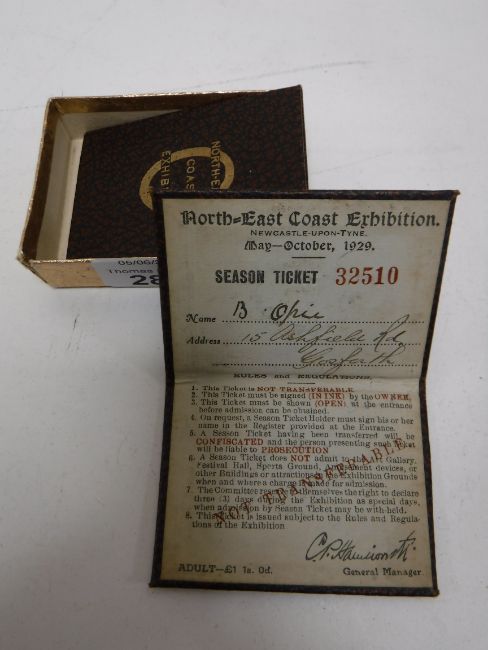 NORTH-E
COAS
EXHIBI
05/06/
Thomas
28
North-East Coast Exhibition.
NEWCASTLE-UPON-TYNE.
May—October, 1929.
SEASON TICKET 32510
Name B. Opie
Address 15 Ashfield Rd.
Gosforth
RULES and REGULATIONS.
1. This Ticket is NOT TRANSFERABLE.
2. This Ticket must be signed (IN INK) by the OWNER.
3. This Ticket must be shown (OPEN) at the entrance
before admission can be obtained.
4. On request, a Season Ticket Holder must sign his or her
name in the Register provided at the Entrance.
5. A Season Ticket having been transferred will be
CONFISCATED and the person presenting such Ticket
will be liable to PROSECUTION
6. A Season Ticket does NOT admit to the Art Gallery,
Festival Hall, Sports Ground, Amusement devices, or
other Buildings or attractions in the Exhibition Grounds
when and where a charge is made for admission.
7. The Committee reserve to themselves the right to declare
three (3) days during the Exhibition as special days,
when admission by Season Ticket may be with-held.
8. This Ticket is issued subject to the Rules and Regula-
tions of the Exhibition
NOT TRANSFERABLE
ADULT—£1 1s. 0d.
General Manager